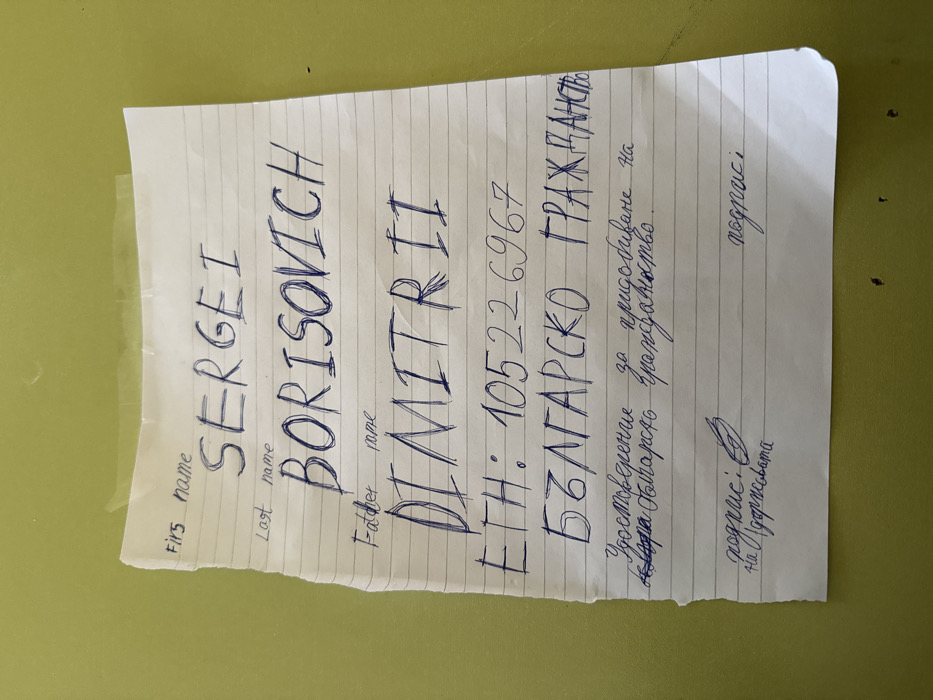 Firs name
SERGEI
Last name
BORISOVICH
Father name
DIMITRII
ЕГН: 1052226967
БЪЛГАРСКО ГРАЖДАНСТВО
Удостоверение за придобиване на
Българско гражданство.
подпис: подпис:
на държавата